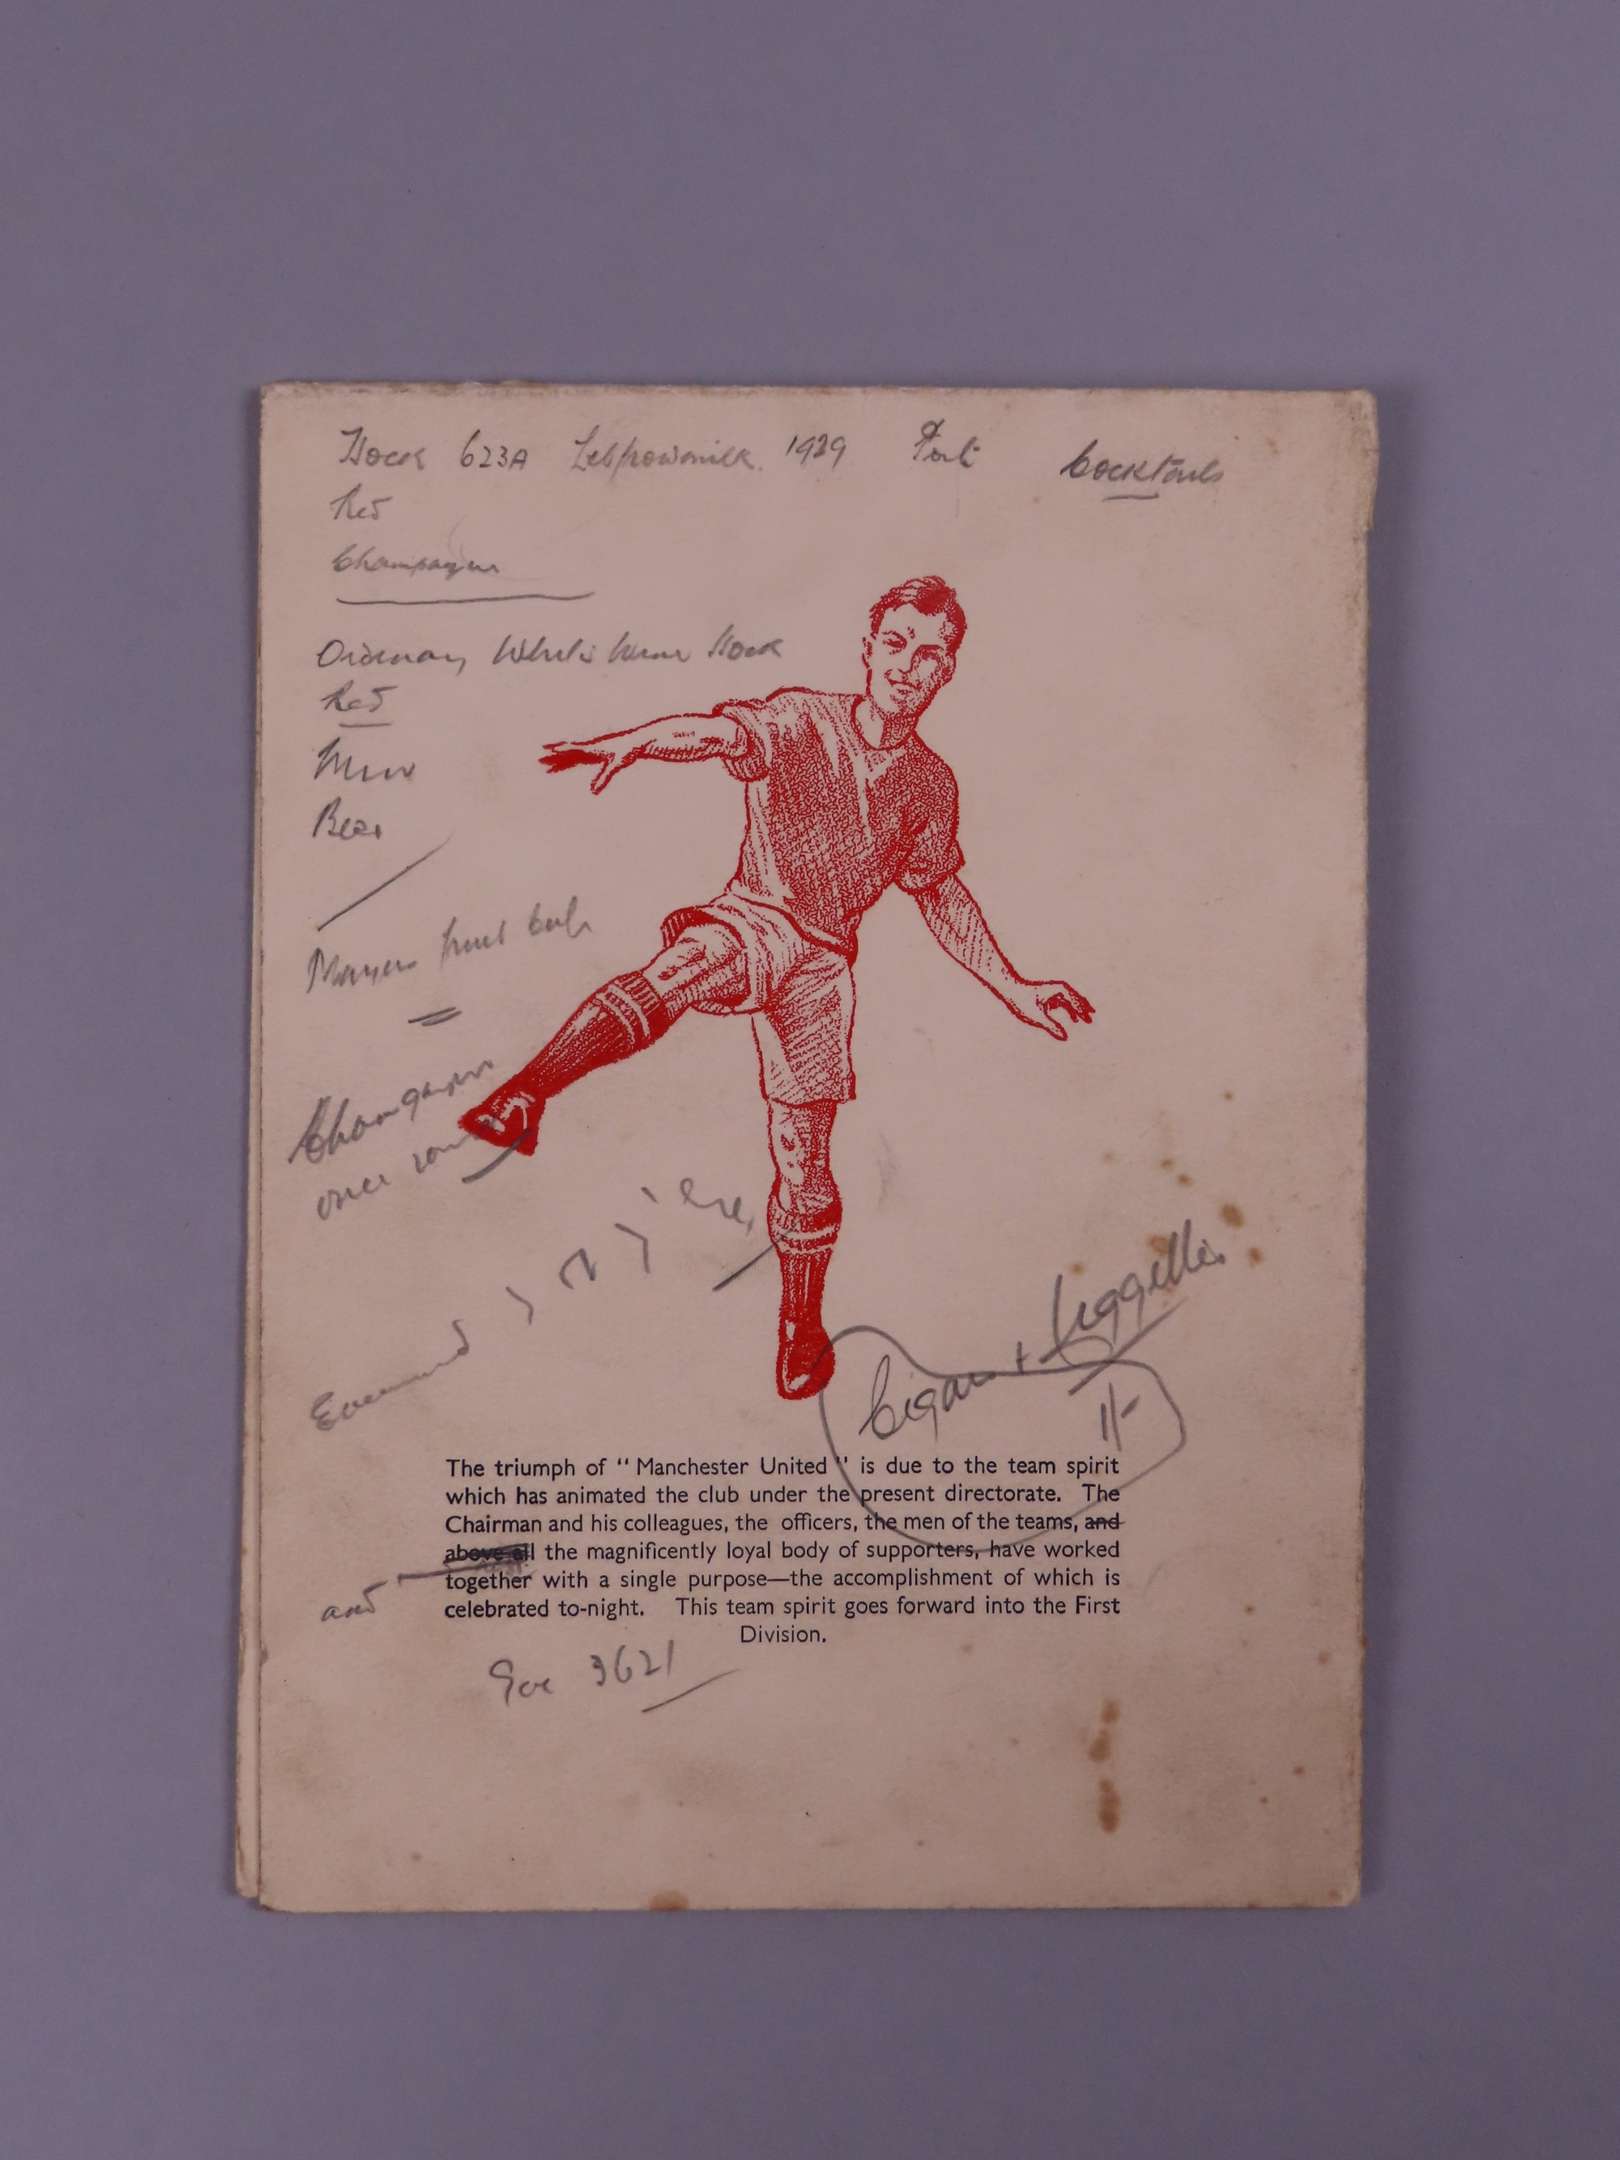 Hock 623A 1929 Port Cocktails
Red
Champagne
Ordinary White Wine Hock
Red
Beer
Champagne
once round
Cigars +
1/-
The triumph of “Manchester United” is due to the team spirit
which has animated the club under the present directorate. The
Chairman and his colleagues, the officers, the men of the teams, and
above all the magnificently loyal body of supporters, have worked
and
together with a single purpose—the accomplishment of which is
celebrated to-night. This team spirit goes forward into the First
Division.
3621